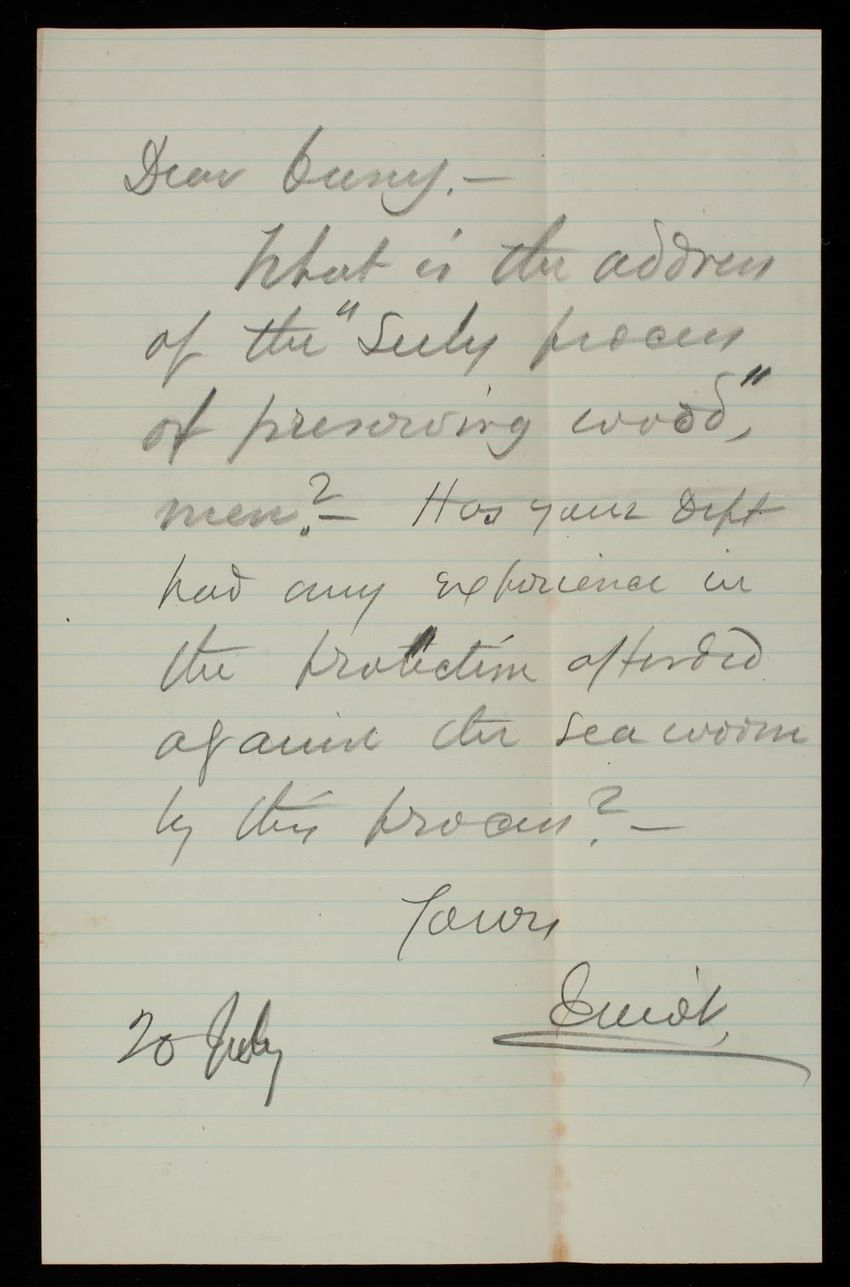 Dear Casey.—
What is the address
of the "Seely process
of preserving wood,"
men?— Has your Dept
had any experience in
the protection afforded
against the sea worm
by this process?—
Yours
20 July